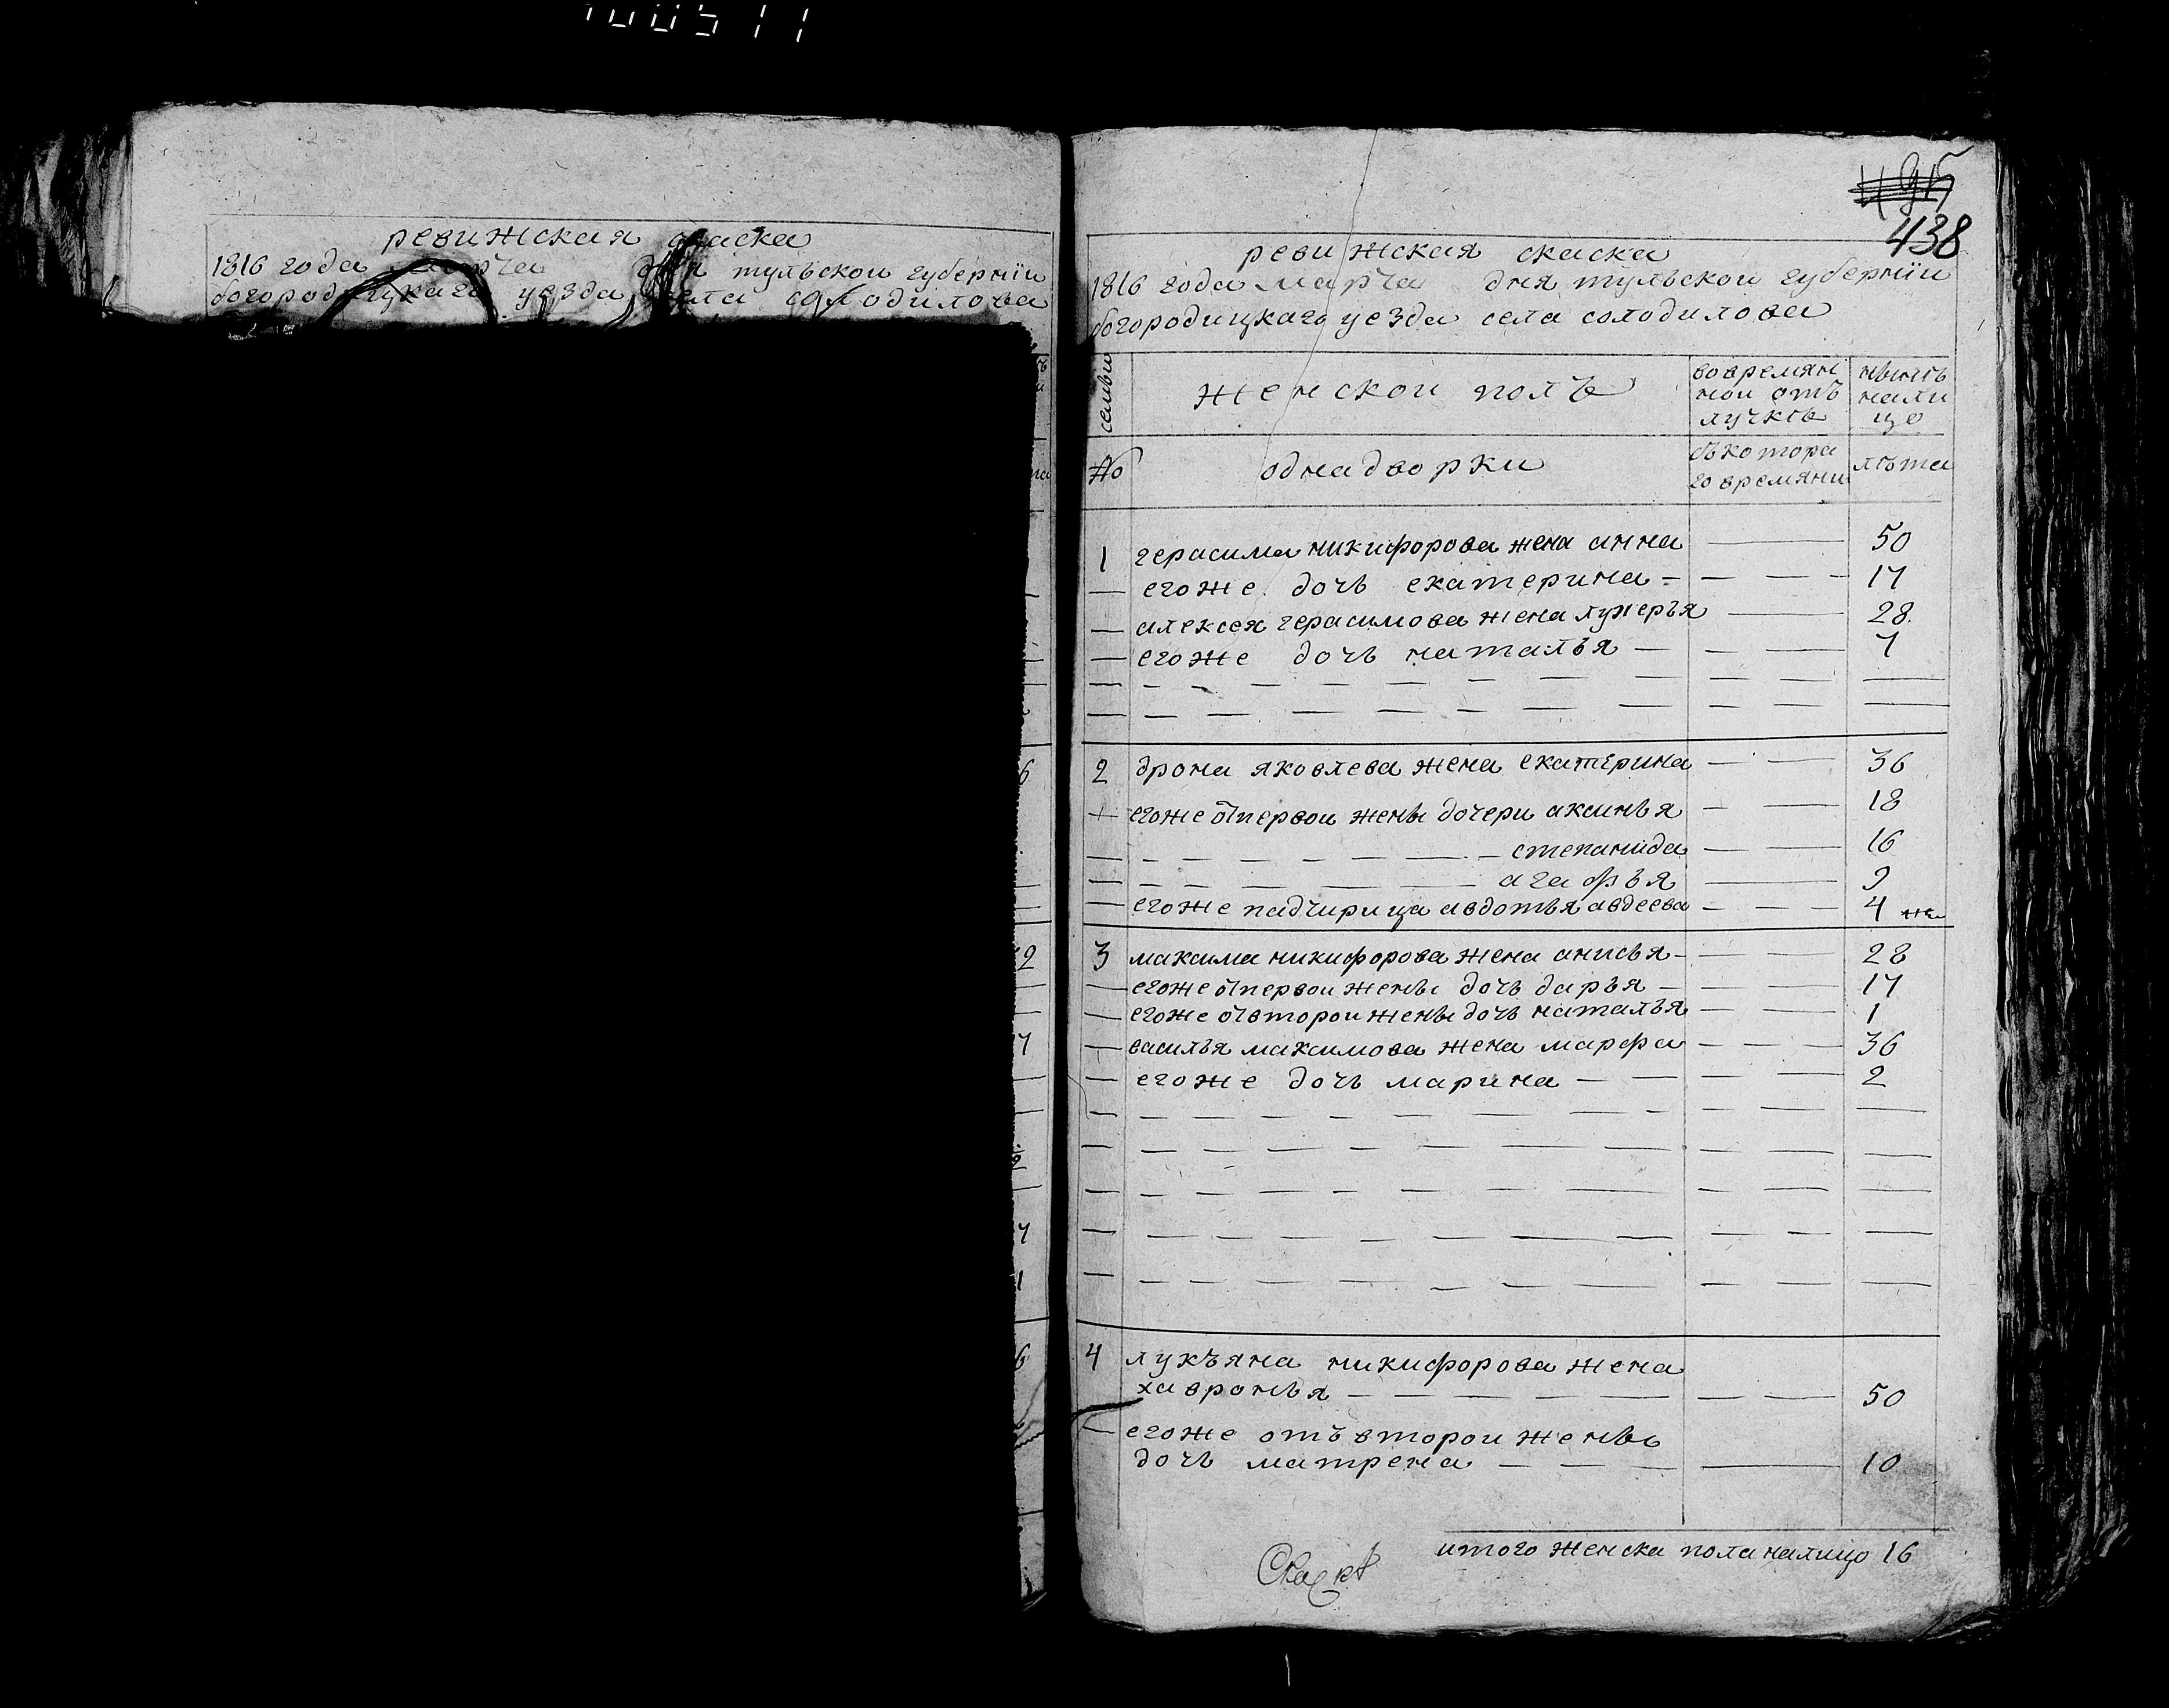 ревижская скаска
1816 года марта дня тульскои губернїи
богородицкаго уезда села солодилова
6
2
7
7
1
6
438
ревижская скаска
1816 года марта дня тульскои губернїи
богородицкаго уезда села солодилова
семьи
женскои полъ
вовремян
нои отъ
лучкѣ
нынѣ
нали
цо
№
однадворки
съкотора
го времяни
лѣта
1 герасима никифорова жена анна 50
егоже дочь екатерина 17
алексея герасимова жена лукерья 28
егоже дочь наталья 7
2 дрона яковлева жена екатерина 36
егоже отпервои жены дочери аксинья 18
степанида 16
агафья 9
егоже падчирица авдотья авдеева 4
3 максима никифорова жена анисья 28
егоже отпервои жены дочь дарья 17
егоже отвторои жены дочь наталья 1
василья максимова жена марфа 36
егоже дочь марина 2
4 лукъяна никифорова жена
хавронья 50
егоже отъвторои жены
дочь матрена 10
итого женска пола налицо 16